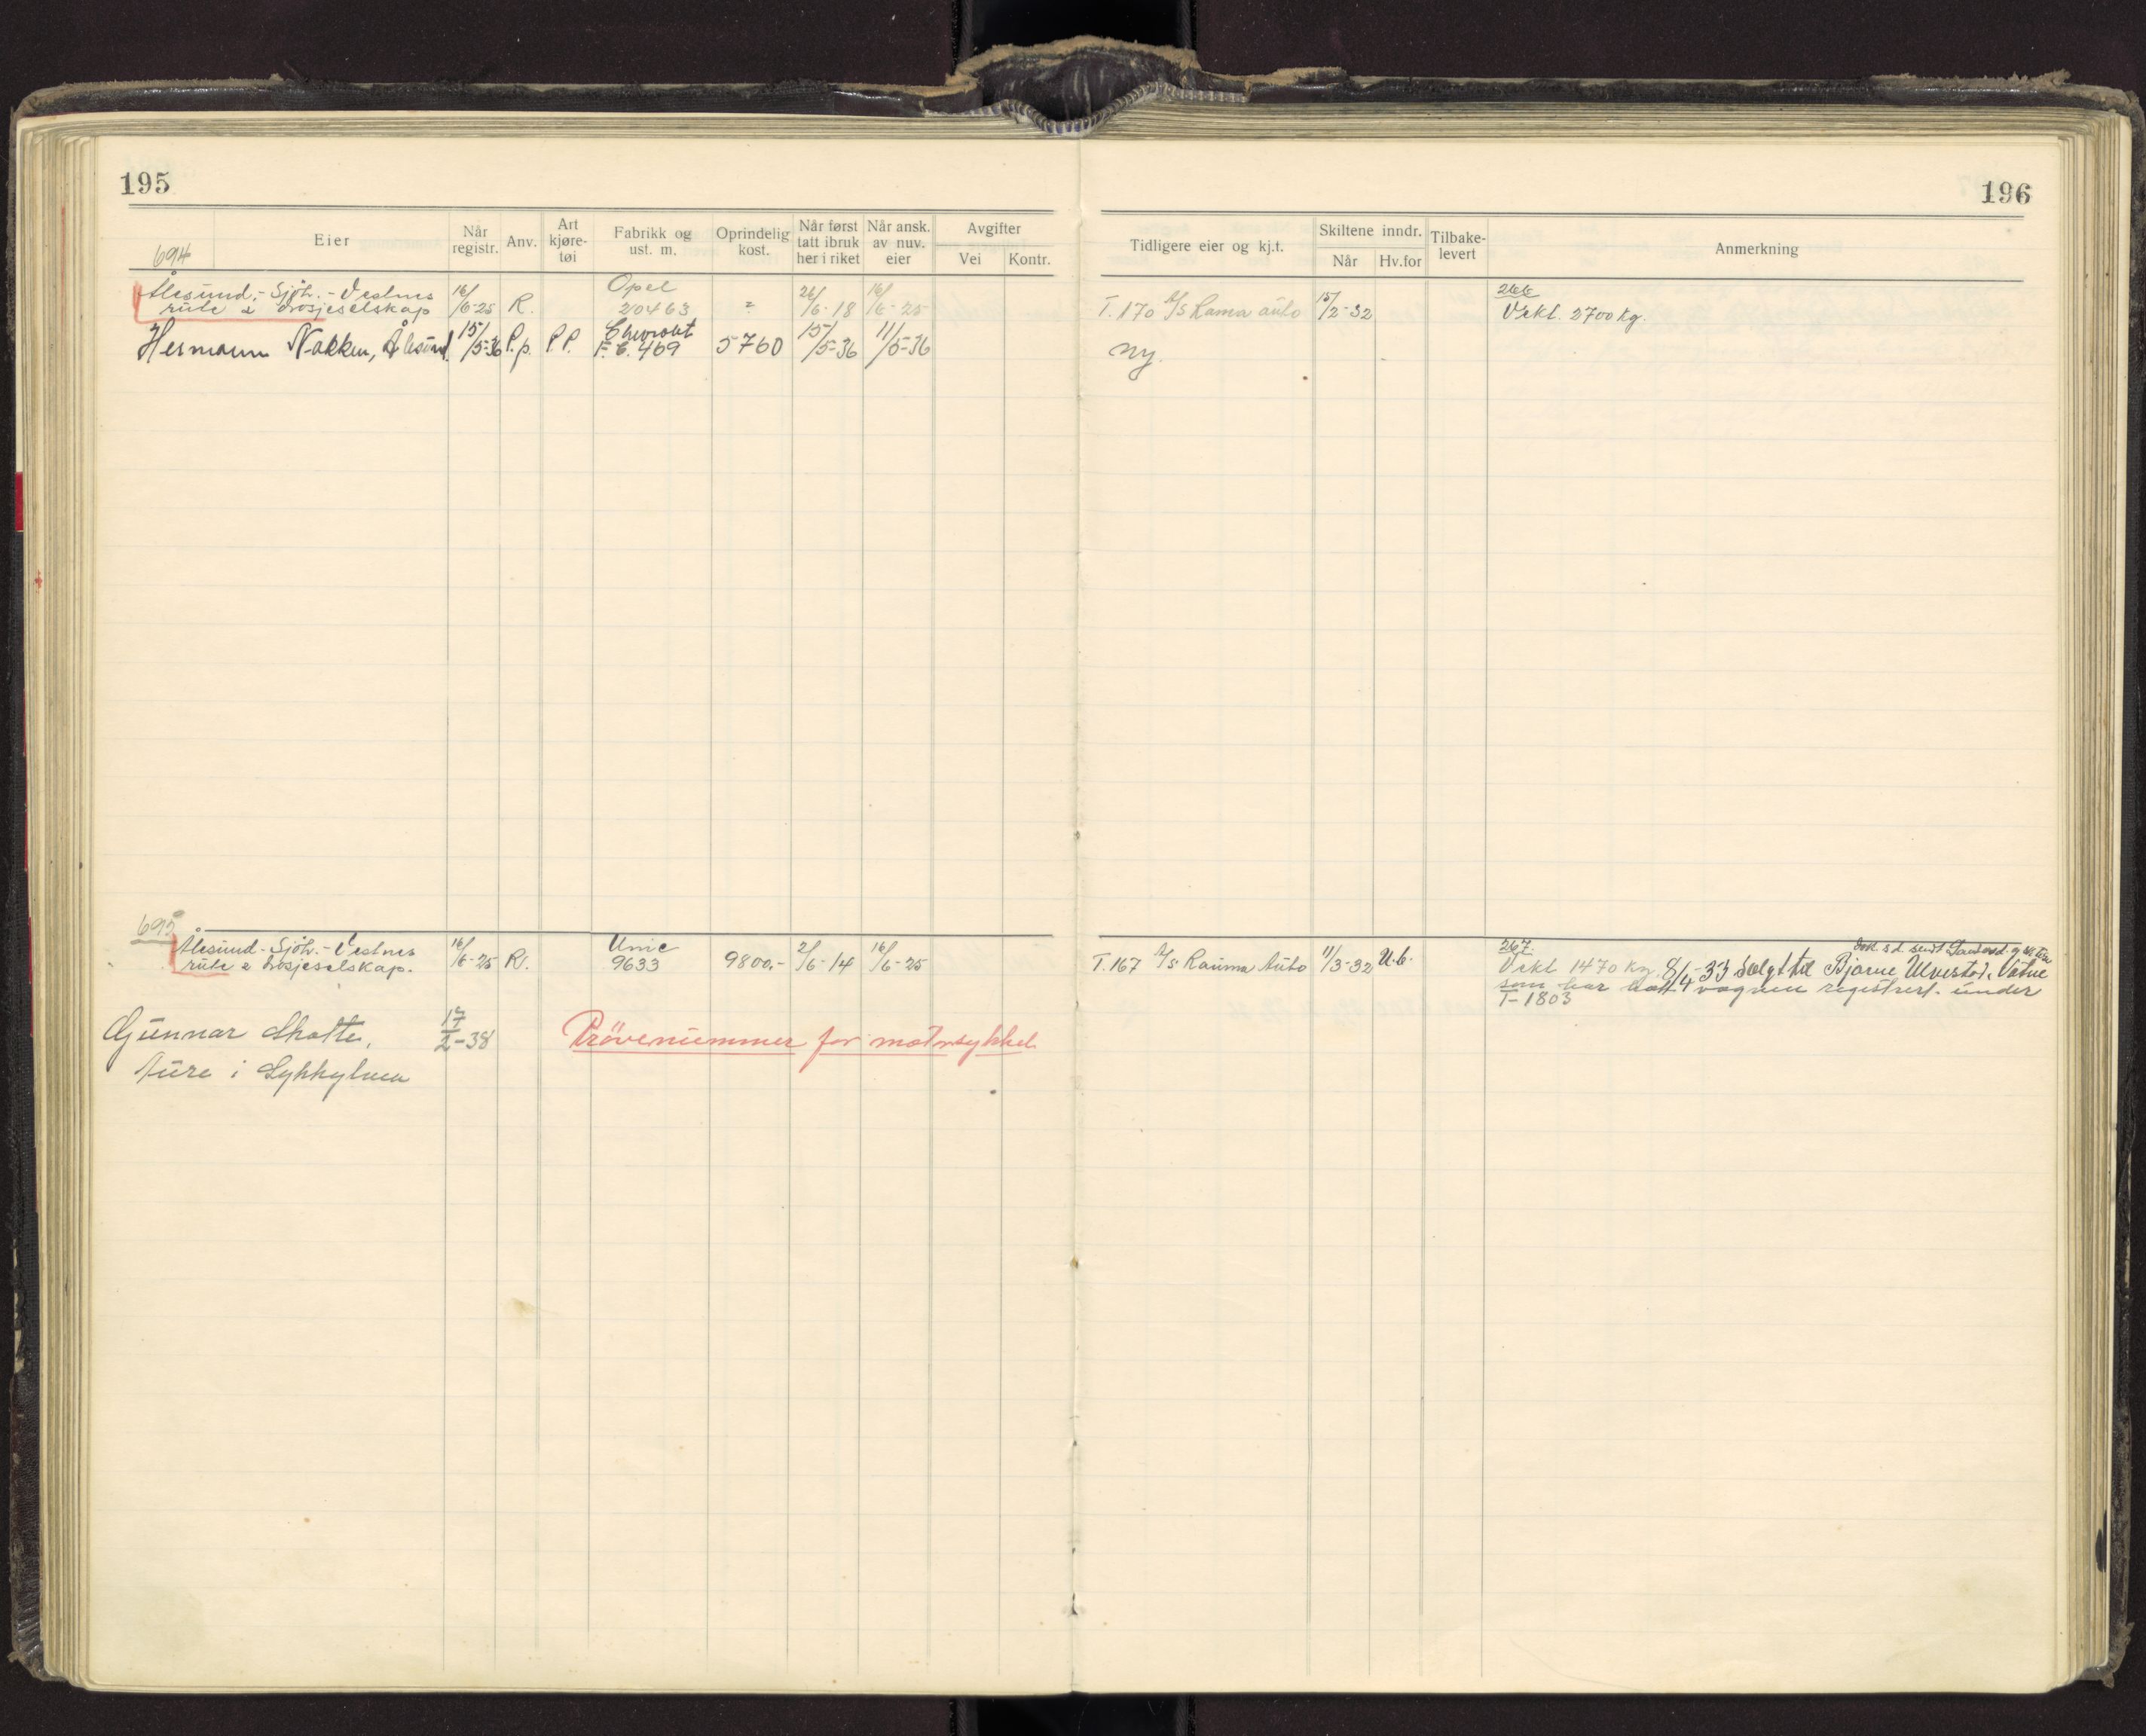 195
196
Eier
Når registr.
Anv.
Art kjøre-tøi
Fabrikk og ust. m.
Oprindelig kost.
Når først tatt ibruk her i riket
Når ansk. av nuv. eier
Avgifter
Vei
Kontr.
Tidligere eier og kj.t.
Skiltene inndr.
Når
Hv.for
Tilbake-levert
Anmerkning
694
Ålesund,- Sjøh. - Vestnes 16/6-25 R. Opel 26/6-18 16/6-25 T. 170 A/s Rama auto 15/2-32 266
rute & drosjeselskap 20463 Vekt. 2700 kg.
Hermann Nakken, Ålesund 15/5-36 P.p. P.P. Chevrolet F.C. 469 5760 15/5-36 11/5-36 ny.
695
Ålesund - Sjøh. - Vestnes 16/6-25 R. Unic 9800,- 2/6-14 16/6-25 T. 167 A/s Rauma Auto 11/3-32 U.b. 267.
rute & drosjeselskap. 9633 Vekt 1470 kg. 8/4-33 Solgt til Bjarne Ulvestad, Vatne
som har hatt vognen registrert under
T-1803
Gunnar Skotte, 17/2-38 Prövenummer for motorsykkel
Aure i Sykkylven